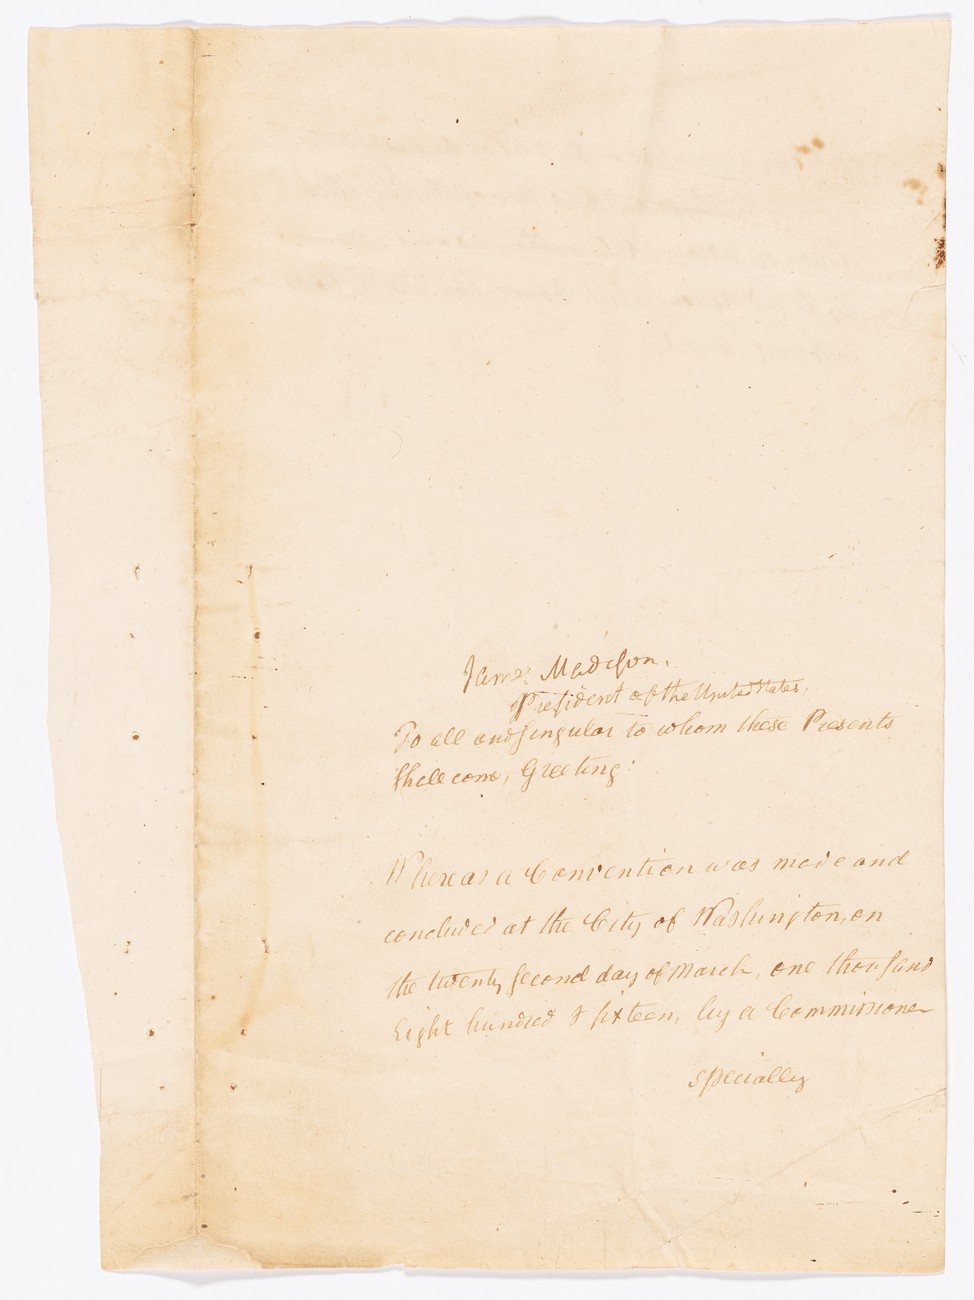 James Madison,
President of the United States,
To all and singular to whom these Presents
shall come, Greeting:
Whereas a Convention was made and
concluded at the City of Washington, on
the twenty second day of March, one thousand
Eight hundred & sixteen, by a Commissioner
specially